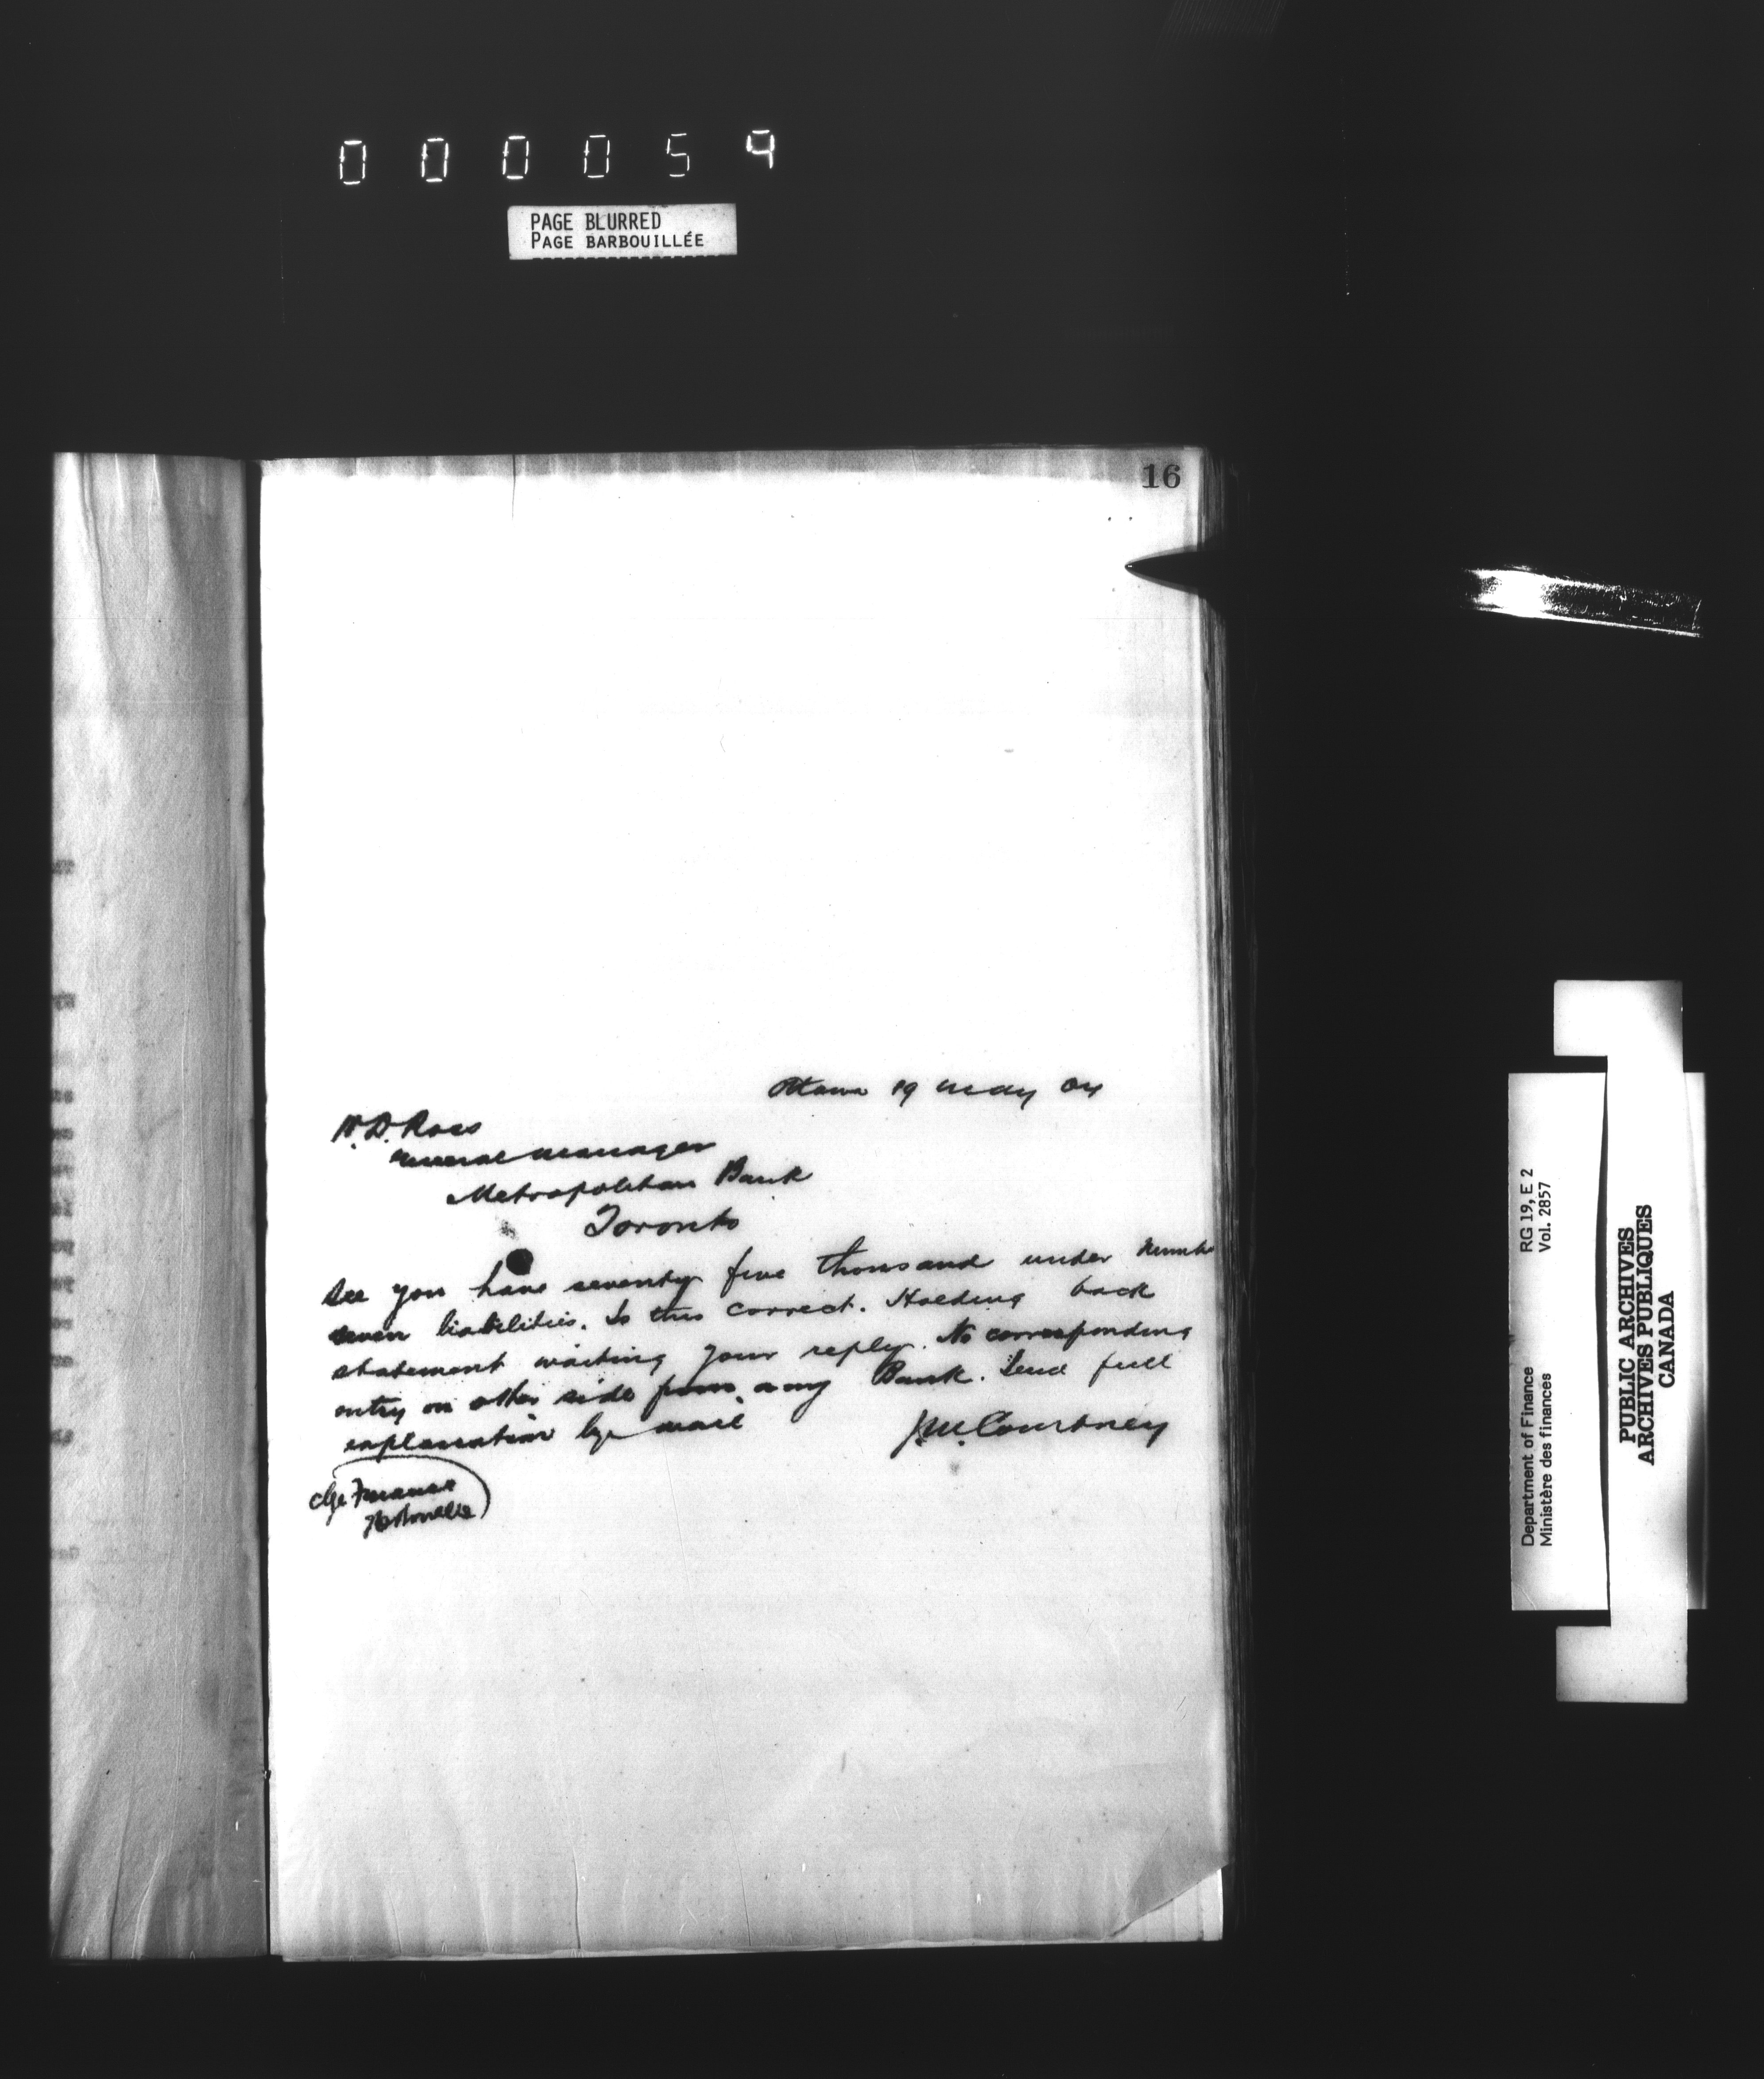 000059
PAGE BLURRED
PAGE BARBOUILLÉE
16
Ottawa 19 May 04
W.D. Ross
General Manager
Metropolitan Bank
Toronto
See you have seventy five thousand under numbe
seven liabilities. Is this correct. Holding back
statement waiting your reply. No corresponding
entry on other side from any Bank. Send full
explanation by mail
J.M. Courtney
chge Finance
RG 19, E 2
Vol. 2857
Department of Finance
Ministère des finances
PUBLIC ARCHIVES
ARCHIVES PUBLIQUES
CANADA